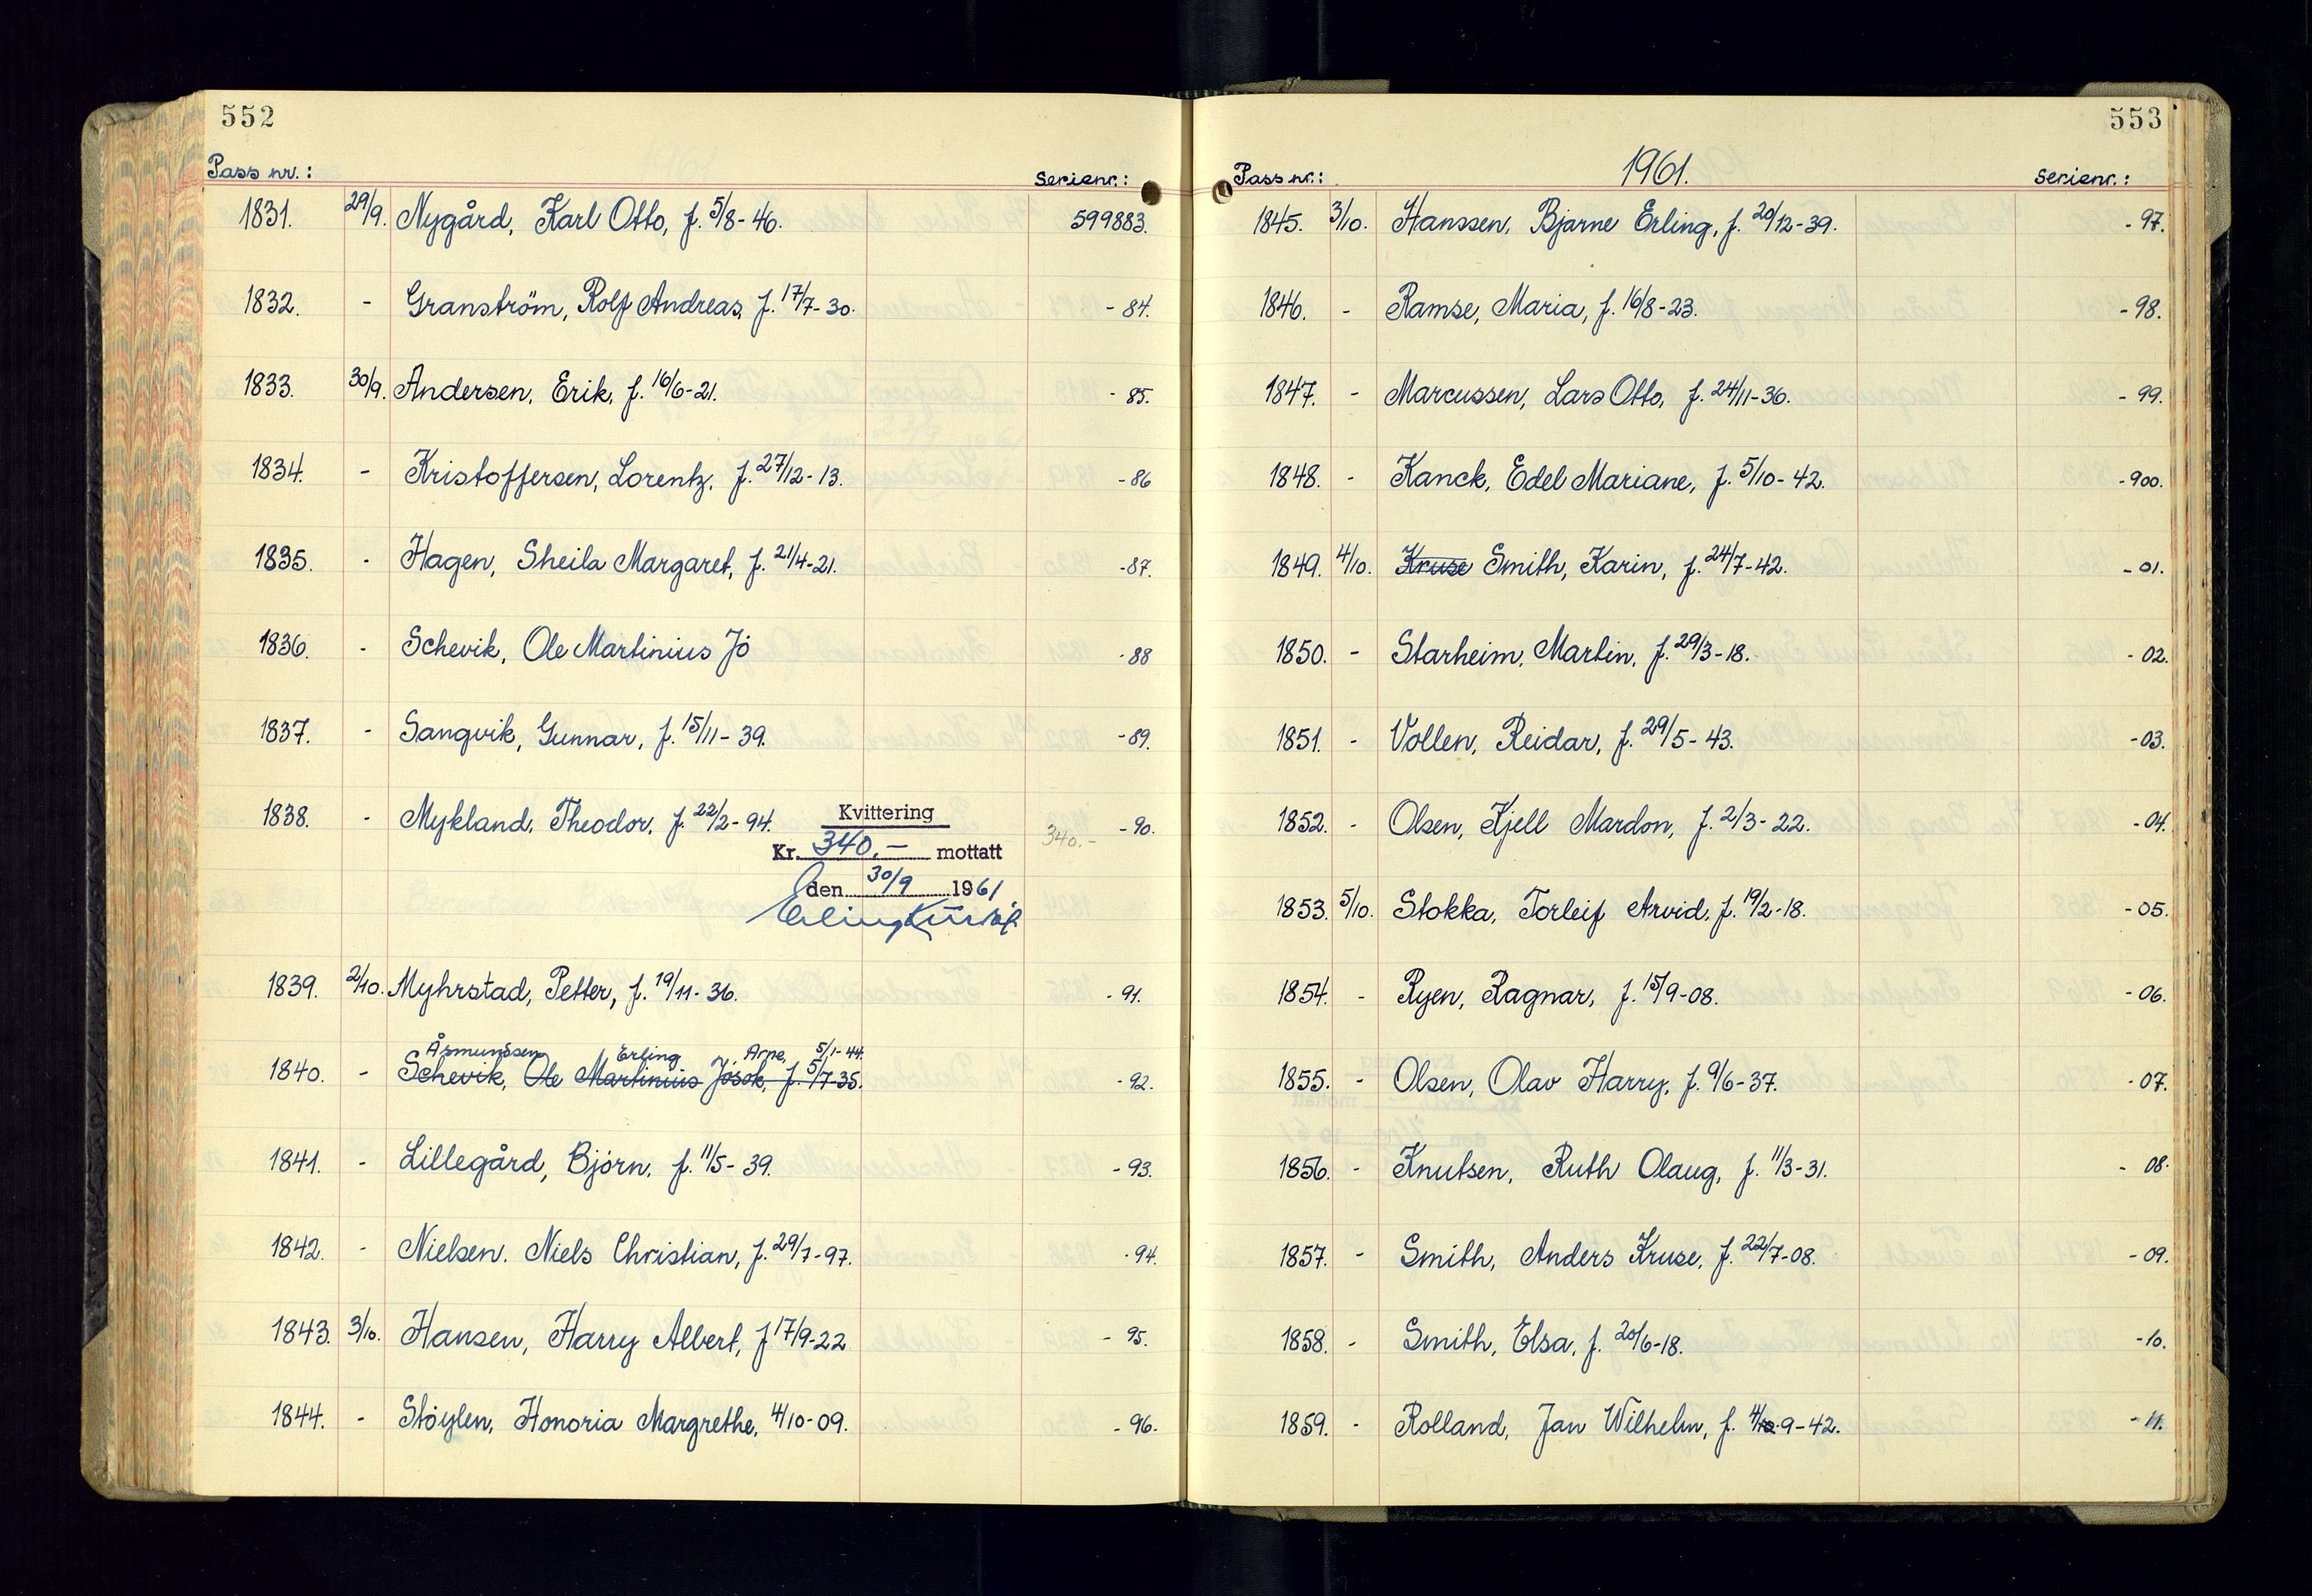 552
Pass nr.: Serienr.:
1831. 29/9. Nygård, Karl Otto, f. 5/8-46. 599883.
1832. - Granström, Rolf Andreas, f. 17/7-30. - 84.
1833. 30/9. Andersen, Erik, f. 16/6-21. - 85.
1834. - Kristoffersen, Lorentz, f. 27/12-13. - 86
1835. - Hagen, Sheila Margaret, f. 21/4-21. - 87.
1836. - Schevik, Ole Martinius Jo - 88
1837. - Sangvik, Gunnar, f. 15/11-39. - 89.
1838. - Mykland, Theodor, f. 22/2-94. 340.- - 90.
Kvittering
Kr. 340.- mottatt
den 30/9 1961
1839. 2/10. Myhrstad, Petter, f. 19/11-36. - 91.
Åsmundsen Erling Arne, 5/1-44.
1840. - Schevik, Ole Martinius Josok, f. 5/7-35. - 92.
1841. - Lillegård, Björn, f. 11/5-39. - 93.
1842. - Nielsen. Niels Christian, f. 29/7-97. - 94.
1843. 3/10. Hansen, Harry Albert, f 17/9-22 - 95.
1844. - Støylen, Honoria Margrethe, 4/10-09. - 96.
553
Pass nr.: 1961. Serienr.:
1845. 3/10. Hanssen, Bjarne Erling, f. 20/12-39. - 97.
1846. - Ramse, Maria, f. 16/8-23. - 98.
1847. - Marcussen, Lars Otto, f. 24/11-36. - 99.
1848. - Kanck, Edel Mariane, f. 5/10-42. - 900.
1849. 4/10. Kruse Smith, Karin, f. 24/7-42. - 01.
1850. - Starheim, Martin, f. 29/3-18. - 02.
1851. - Vollen, Reidar, f. 29/5-43. - 03.
1852. - Olsen, Kjell Mardon, f. 2/3-22. - 04.
1853. 5/10. Stokka, Torleif Arvid, f. 19/2-18. - 05.
1854. - Ryen, Ragnar, f. 15/9-08. - 06.
1855. - Olsen, Olav Harry, f. 9/6-37. - 07.
1856. - Knutsen, Ruth Olaug, f. 11/3-31. - 08.
1857. - Smith, Anders Kruse, f. 22/7-08. - 09.
1858. - Smith, Elsa, f. 20/6-18. - 10.
1859. - Rolland, Jan Wilhelm, f. 4/10 9-42. - 11.